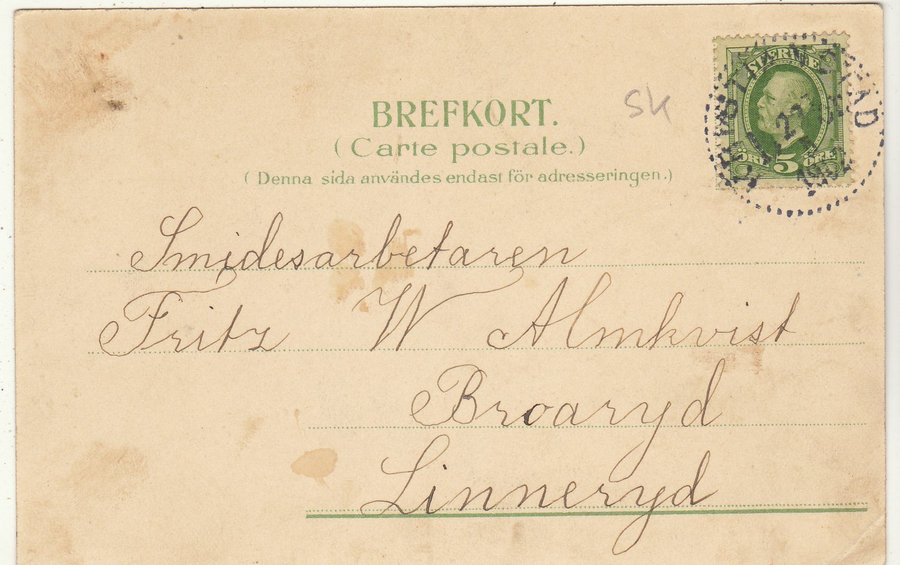 BREFKORT.
(Carte postale.)
(Denna sida användes endast för adresseringen.)
SK
SVERIGE
5 ÖRE
Smidesarbetaren
Fritz W Almkvist
Broaryd
Linneryd